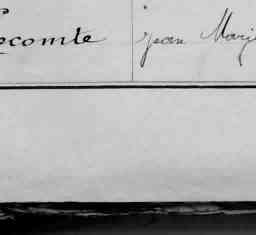 Lecomte Jean Marie